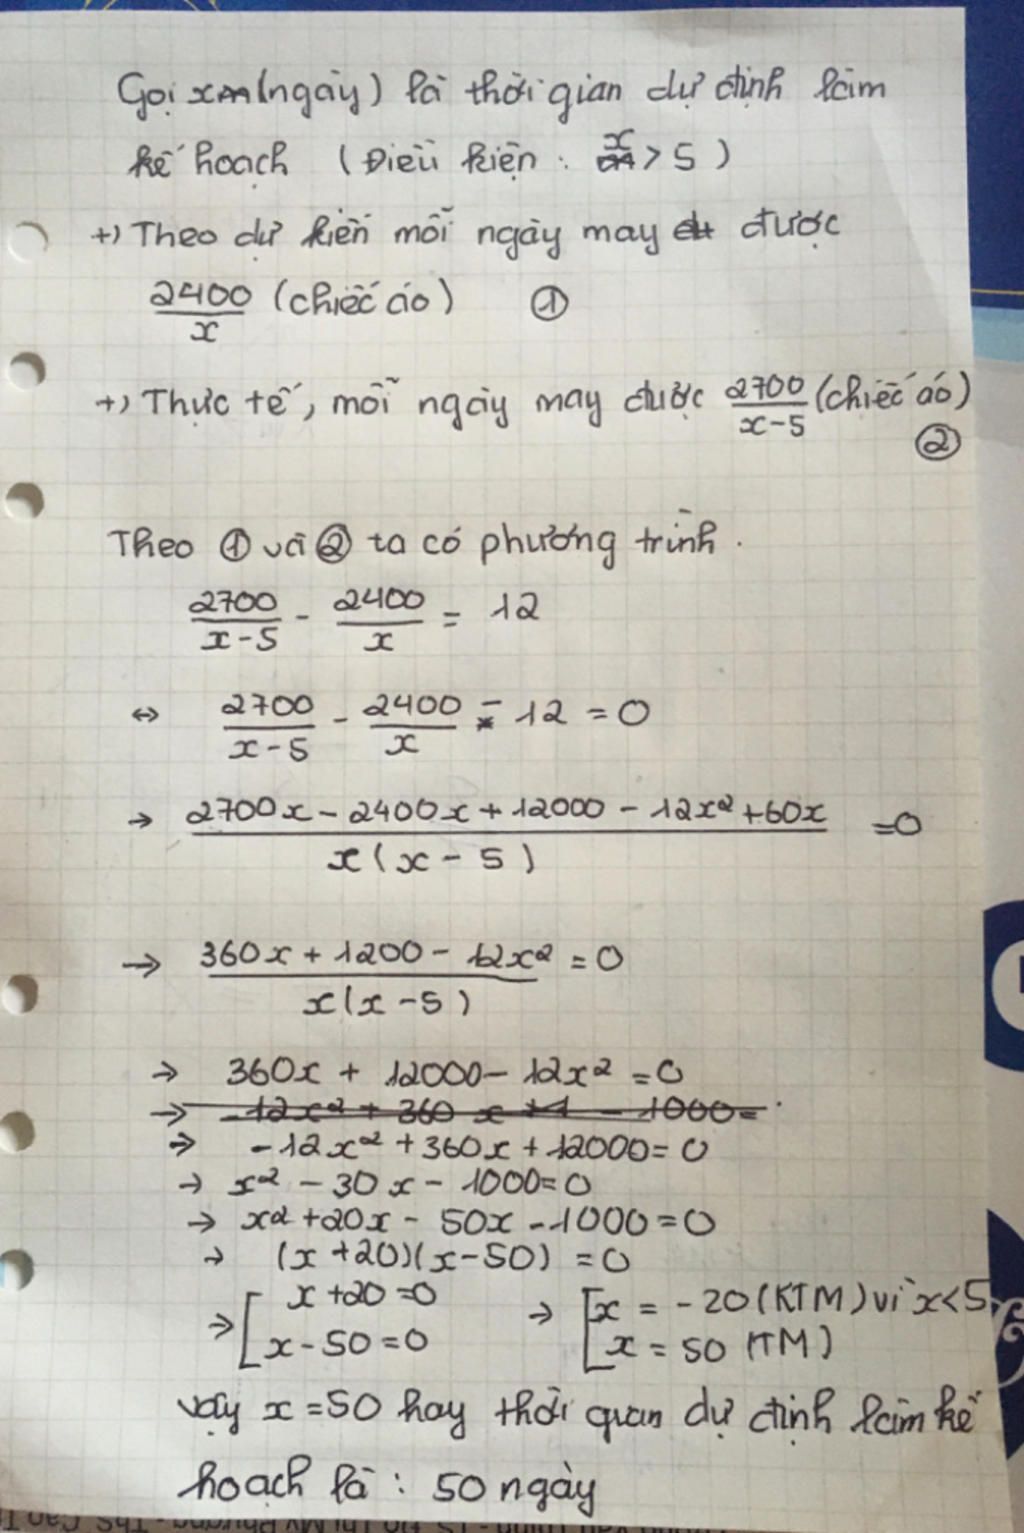 Gọi x (ngày) là thời gian dự định làm
kế hoạch (Điều kiện : x > 5)
+) Theo dự kiến mỗi ngày may được
2400/x (chiếc áo) ①
+) Thực tế, mỗi ngày may được 2700/(x-5) (chiếc áo)
②
Theo ① và ② ta có phương trình.
2700/(x-5) - 2400/x = 12
⇔ 2700/(x-5) - 2400/x - 12 = 0
→ (2700x - 2400x + 12000 - 12x² + 60x)/(x(x-5)) = 0
→ (360x + 1200 - 12x²)/(x(x-5)) = 0
→ 360x + 12000 - 12x² = 0
→ -12x² + 360x + 12000 = 0
→ x² - 30x - 1000 = 0
→ x² + 20x - 50x - 1000 = 0
→ (x + 20)(x - 50) = 0
→ [ x + 20 = 0 → [ x = -20 (KTM) vì x < 5
x - 50 = 0 x = 50 (TM)
vậy x = 50 hay thời quan dự định làm kế
hoạch là : 50 ngày